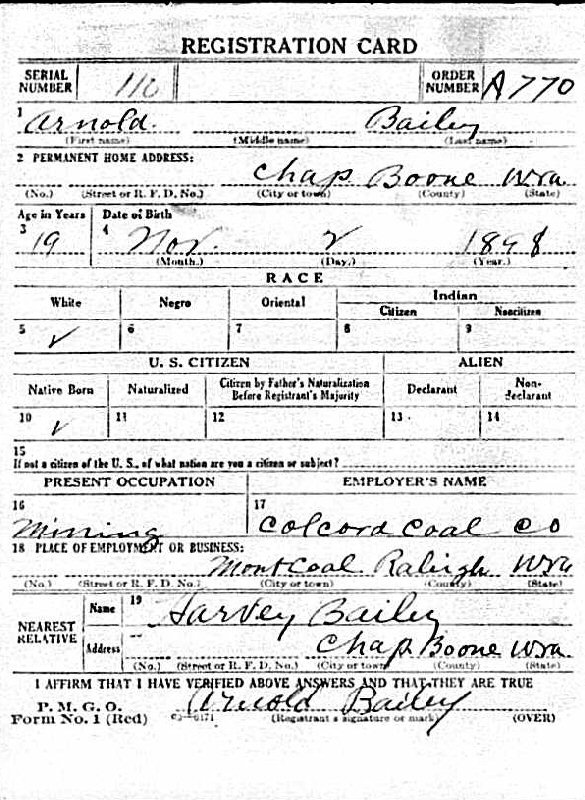 REGISTRATION CARD
SERIAL NUMBER 110 ORDER NUMBER A770
1 Arnold Bailey
(First name) (Middle name) (Last name)
2 PERMANENT HOME ADDRESS:
Chap Boone Wva
(No.) (Street or R. F. D. No.) (City or town) (County) (State)
Age in Years Date of Birth
3 19 4 Nov. 2 1898
(Month.) (Day.) (Year.)
RACE
White Negro Oriental Indian
Citizen Noncitizen
5 ✓ 6 7 8 9
U. S. CITIZEN ALIEN
Native Born Naturalized Citizen by Father's Naturalization Before Registrant's Majority Declarant Non-declarant
10 ✓ 11 12 13 14
15
If not a citizen of the U. S., of what nation are you a citizen or subject?
PRESENT OCCUPATION EMPLOYER'S NAME
16 Mining 17 Colcord Coal Co
18 PLACE OF EMPLOYMENT OR BUSINESS:
Montcoal Raleigh Wva
(No.) (Street or R. F. D. No.) (City or town) (County) (State)
NEAREST RELATIVE Name 19 Harvey Bailey
Address Chap Boone Wva
(No.) (Street or R. F. D. No.) (City or town) (County) (State)
I AFFIRM THAT I HAVE VERIFIED ABOVE ANSWERS AND THAT THEY ARE TRUE
P. M. G. O. Arnold Bailey
Form No. 1 (Red) (Registrant's signature or mark) (OVER)